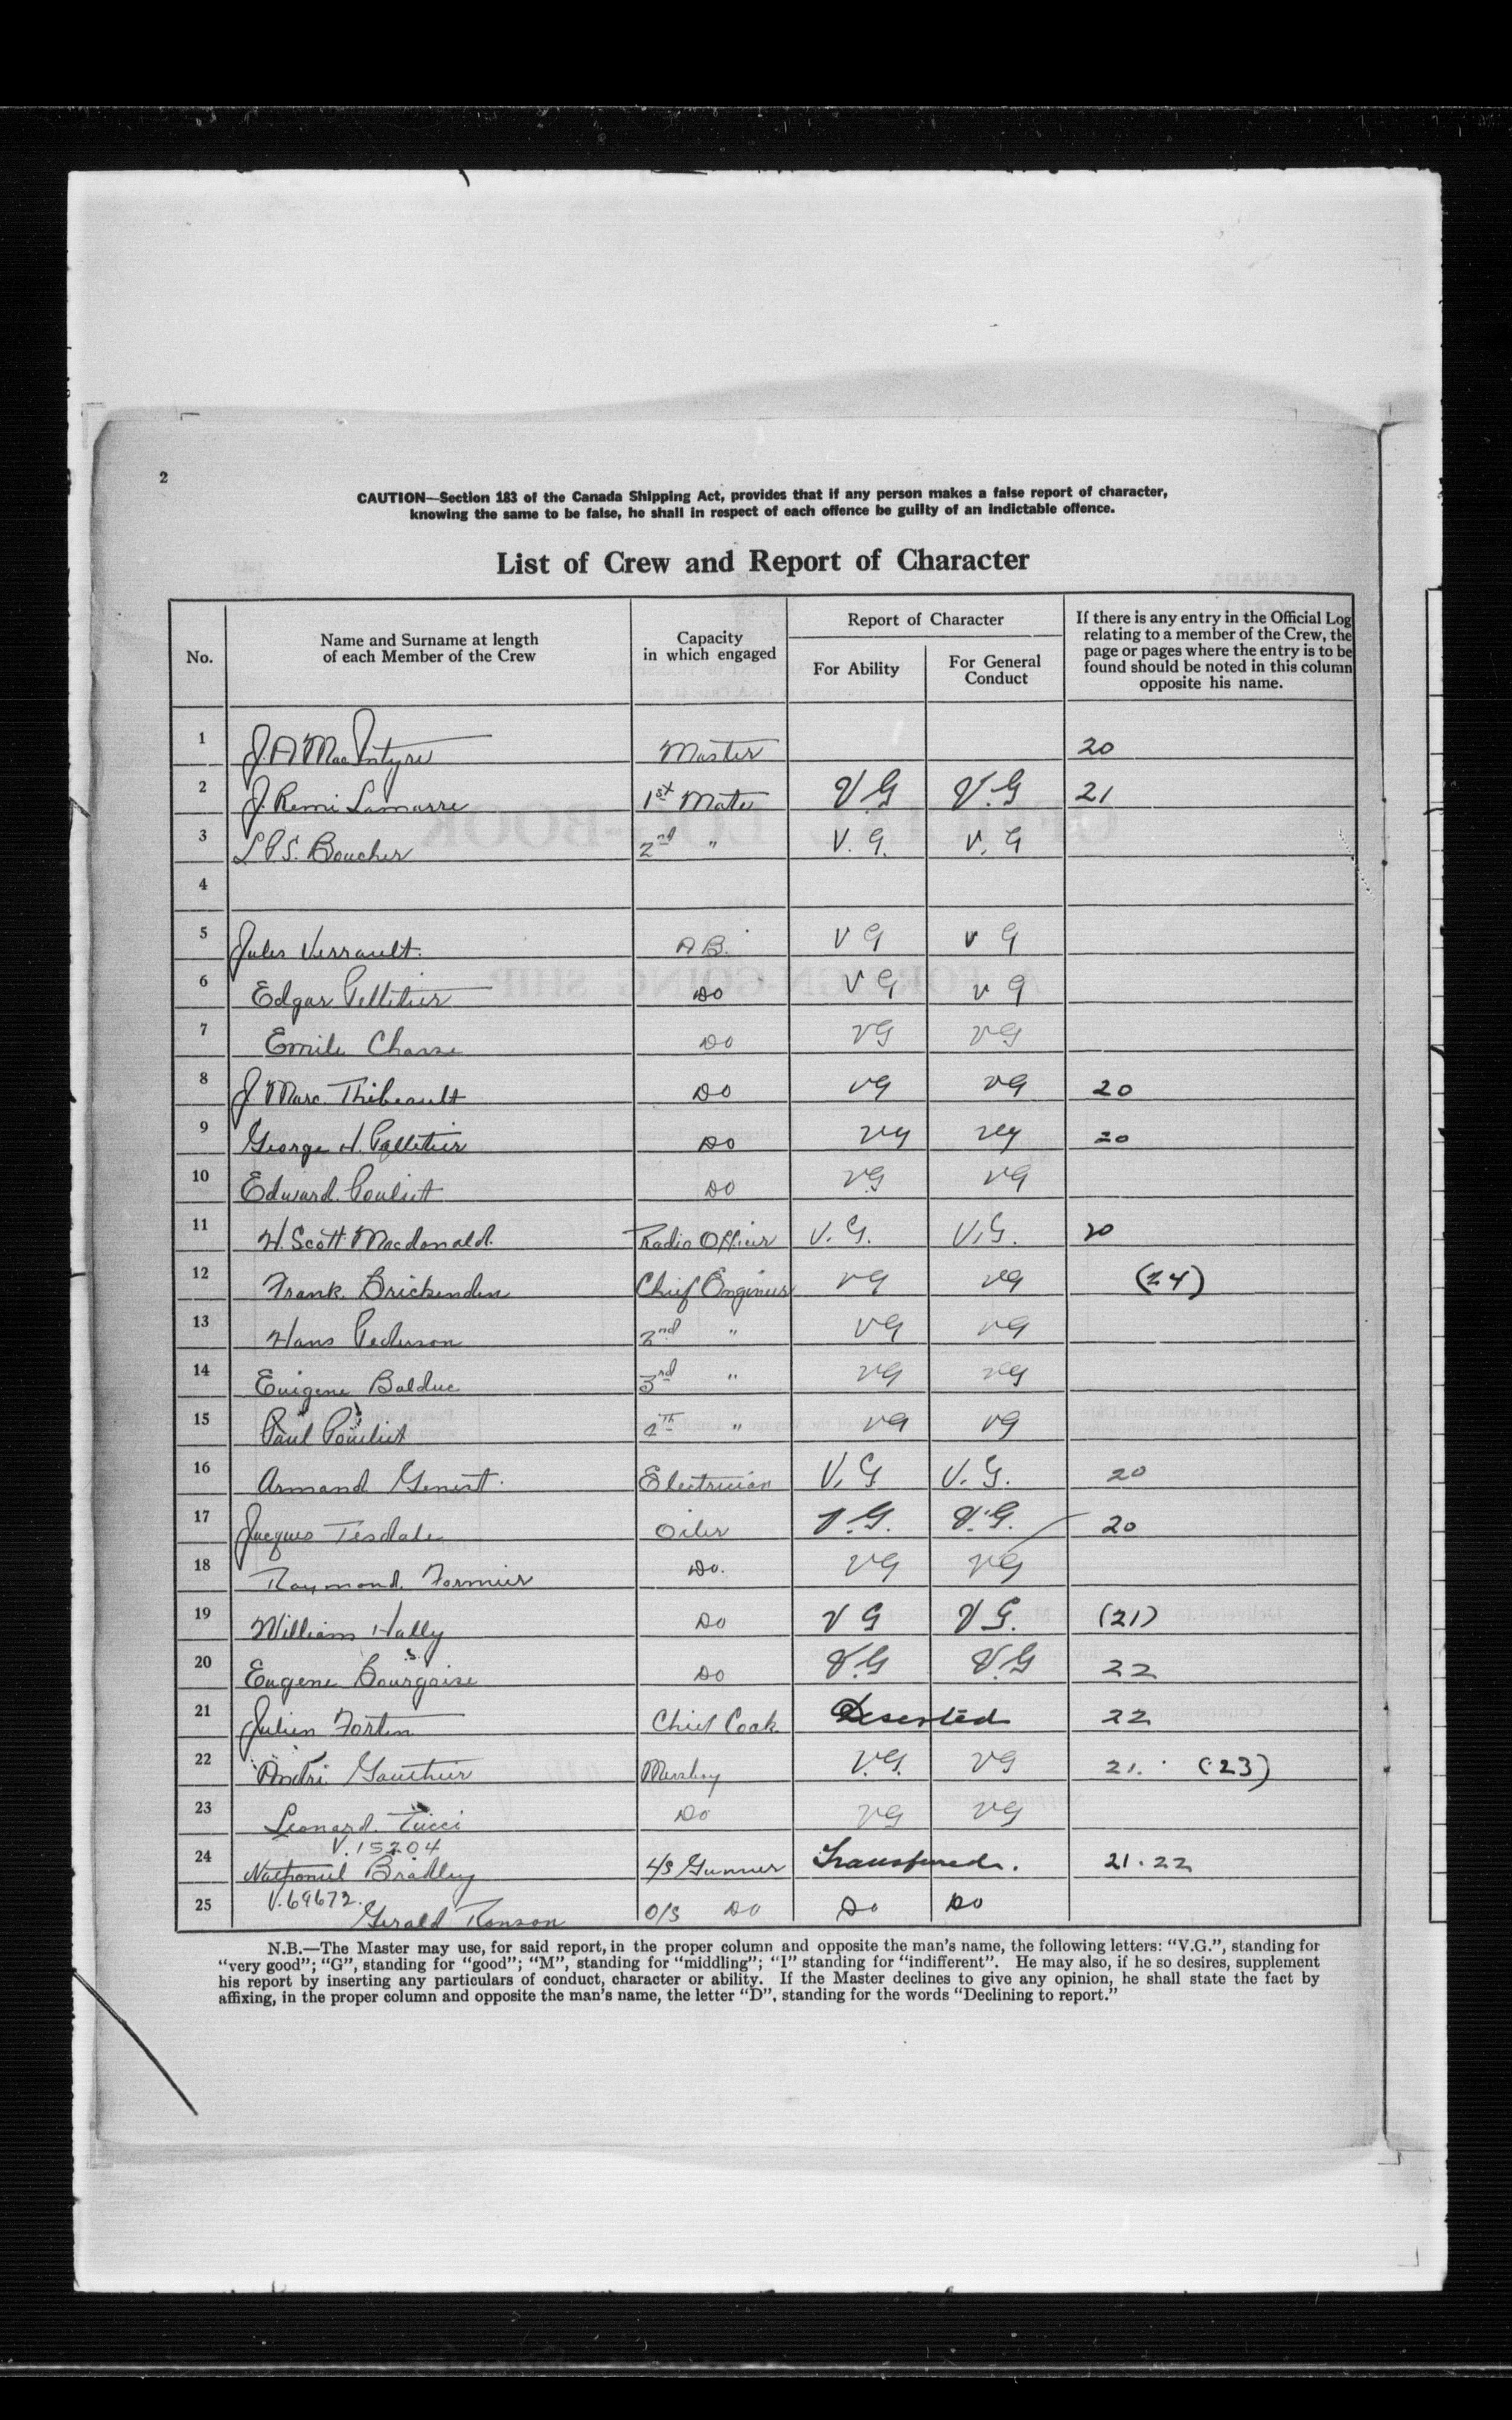 2
CAUTION—Section 183 of the Canada Shipping Act, provides that if any person makes a false report of character,
knowing the same to be false, he shall in respect of each offence be guilty of an indictable offence.
List of Crew and Report of Character
No.
Name and Surname at length
of each Member of the Crew
Capacity
in which engaged
Report of Character
For Ability
For General
Conduct
If there is any entry in the Official Log
relating to a member of the Crew, the
page or pages where the entry is to be
found should be noted in this column
opposite his name.
1 J. A MacIntyre Master 20
2 J. Remi Lamarre 1st Mate V.G V.G 21
3 L P S. Boucher 2nd " V. G. V. G
4
5 Jules Verrault. A B. V G V G
6 Edgar Pelletier Do V G V G
7 Emile Chasse Do VG VG
8 J Marc. Thibeault Do VG VG 20
9 George H. Pelletier Do VG VG 20
10 Edward. Pouliot Do VG VG
11 H. Scott Macdonald. Radio Officer V. G. V.G. 20
12 Frank. Brickenden Chief Engineer VG VG (24)
13 Hans Pederson 2nd " VG VG
14 Euigene Balduc 3rd " VG VG
15 Paul Pouliot " VG VG
16 Armand Genest. Electrician V. G V. G. 20
17 Jacques Tisdale Oiler V.G. V.G. 20
18 Raymond. Formier Do. VG VG
19 William Hally Do V G V G. (21)
20 Eugene Bourgoise Do V.G V.G 22
21 Julien Fortin Chief Cook Deserted 22
22 André Gauthier Messboy V.G. VG 21. (23)
23 Leonard. Tucci Do VG VG
V.15204
24 Nathaniel Bradley Gunner Transferred. 21.22
V.69672.
25 Gerald Ronson O/S Do Do Do
N.B.—The Master may use, for said report, in the proper column and opposite the man's name, the following letters: "V.G.", standing for
"very good"; "G", standing for "good"; "M", standing for "middling"; "I" standing for "indifferent". He may also, if he so desires, supplement
his report by inserting any particulars of conduct, character or ability. If the Master declines to give any opinion, he shall state the fact by
affixing, in the proper column and opposite the man's name, the letter "D", standing for the words "Declining to report."